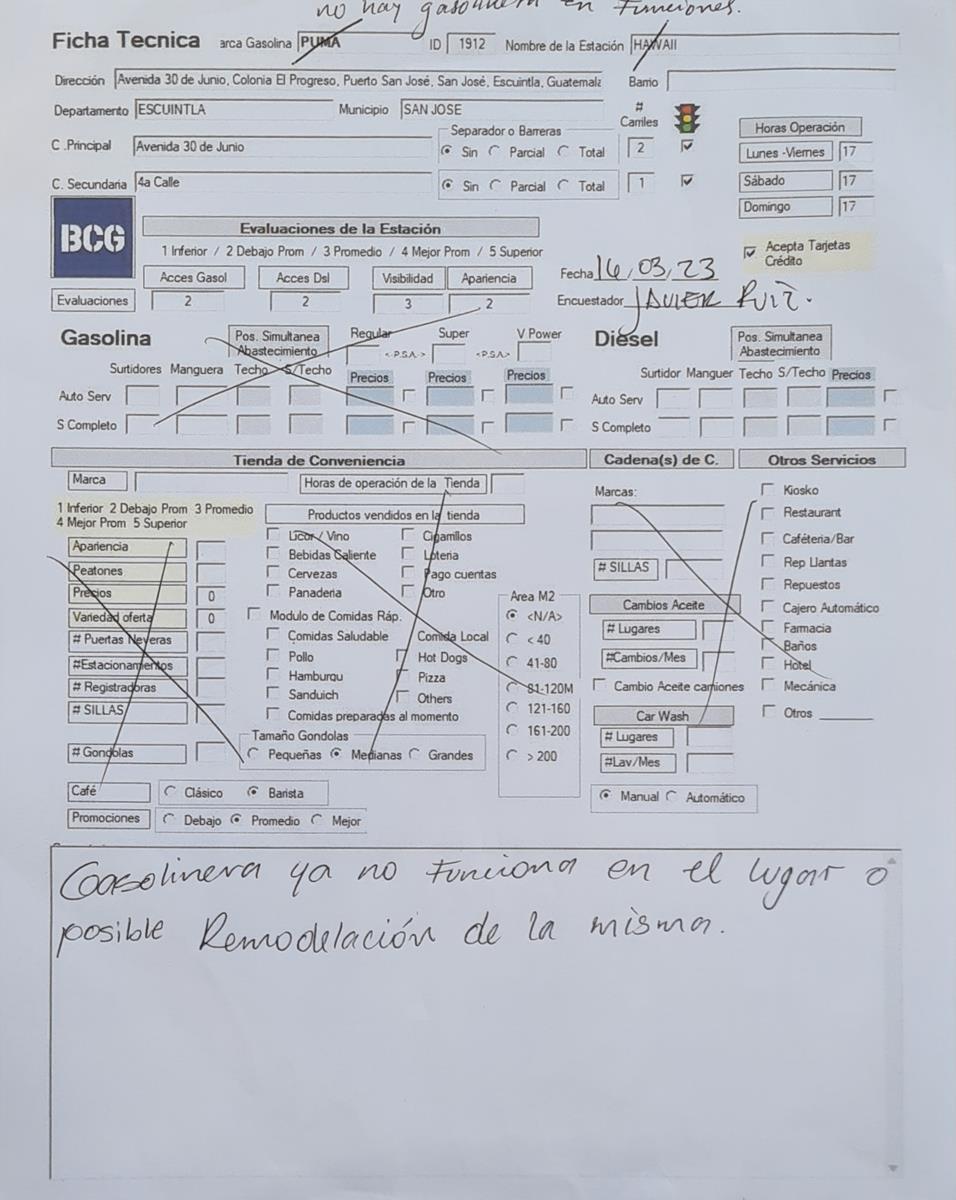 no hay gasolinera en Funciones.
Ficha Tecnica arca Gasolina PUMA ID 1912 Nombre de la Estación HAWAII
Dirección Avenida 30 de Junio, Colonia El Progreso, Puerto San José, San José, Escuintla, Guatemala Barrio
Departamento ESCUINTLA Municipio SAN JOSE # Carriles
Separador o Barreras Horas Operación
C .Principal Avenida 30 de Junio Sin Parcial Total 2 Lunes -Viernes 17
C. Secundaria 4a Calle Sin Parcial Total 1 Sábado 17
Domingo 17
BCG Evaluaciones de la Estación
1 Inferior / 2 Debajo Prom / 3 Promedio / 4 Mejor Prom / 5 Superior
Acepta Tarjetas Crédito
Acces Gasol Acces Dsl Visibilidad Apariencia Fecha 16,03,23
Evaluaciones 2 2 3 2 Encuestador JAVIER RUIZ.
Gasolina Pos. Simultanea Abastecimiento Regular Super V Power Diesel Pos. Simultanea Abastecimiento
<-P.S.A.-> <P.S.A>
Surtidores Manguera Techo S/Techo Precios Precios Precios Surtidor Manguer Techo S/Techo Precios
Auto Serv Auto Serv
S Completo S Completo
Tienda de Conveniencia Cadena(s) de C. Otros Servicios
Marca Horas de operación de la Tienda Marcas: Kiosko
1 Inferior 2 Debajo Prom 3 Promedio Productos vendidos en la tienda Restaurant
4 Mejor Prom 5 Superior
Apariencia Licor / Vino Cigarrillos Caféteria/Bar
Peatones Bebidas Caliente Loteria # SILLAS Rep Llantas
Precios 0 Cervezas Pago cuentas Repuestos
Panaderia Otro Area M2 Cambios Aceite Cajero Automático
Variedad oferta 0 Modulo de Comidas Ráp. <N/A> # Lugares Farmacia
# Puertas Neveras Comidas Saludable Comida Local < 40 Baños
#Estacionamientos Pollo Hot Dogs 41-80 #Cambios/Mes Hotel
# Registradoras Hamburqu Pizza 81-120M Cambio Aceite camiones Mecánica
# SILLAS Sanduich Others 121-160 Car Wash Otros
Comidas preparadas al momento 161-200 # Lugares
Tamaño Gondolas
# Gondolas Pequeñas Medianas Grandes > 200 #Lav/Mes
Café Clásico Barista Manual Automático
Promociones Debajo Promedio Mejor
Gasolinera ya no Funciona en el lugar o
posible Remodelación de la misma.